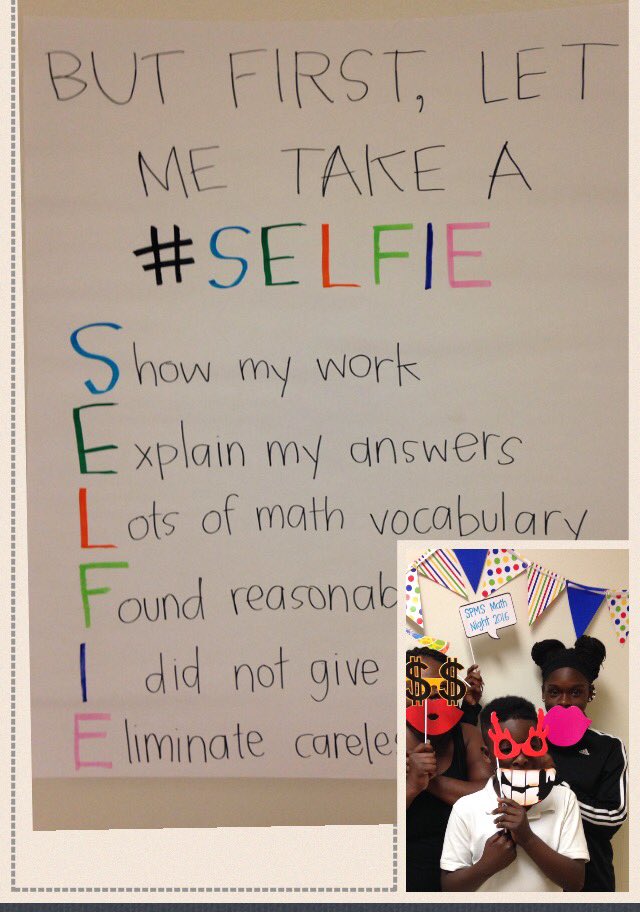 BUT FIRST, LET
ME TAKE A
#SELFIE
Show my work
Explain my answers
Lots of math vocabulary
Found reasonab
I did not give
Eliminate careles
SPMS Math
Night 2016
$ $